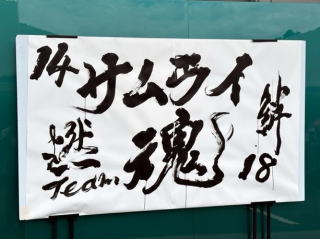 14 サムライ
Team 魂
絆
18